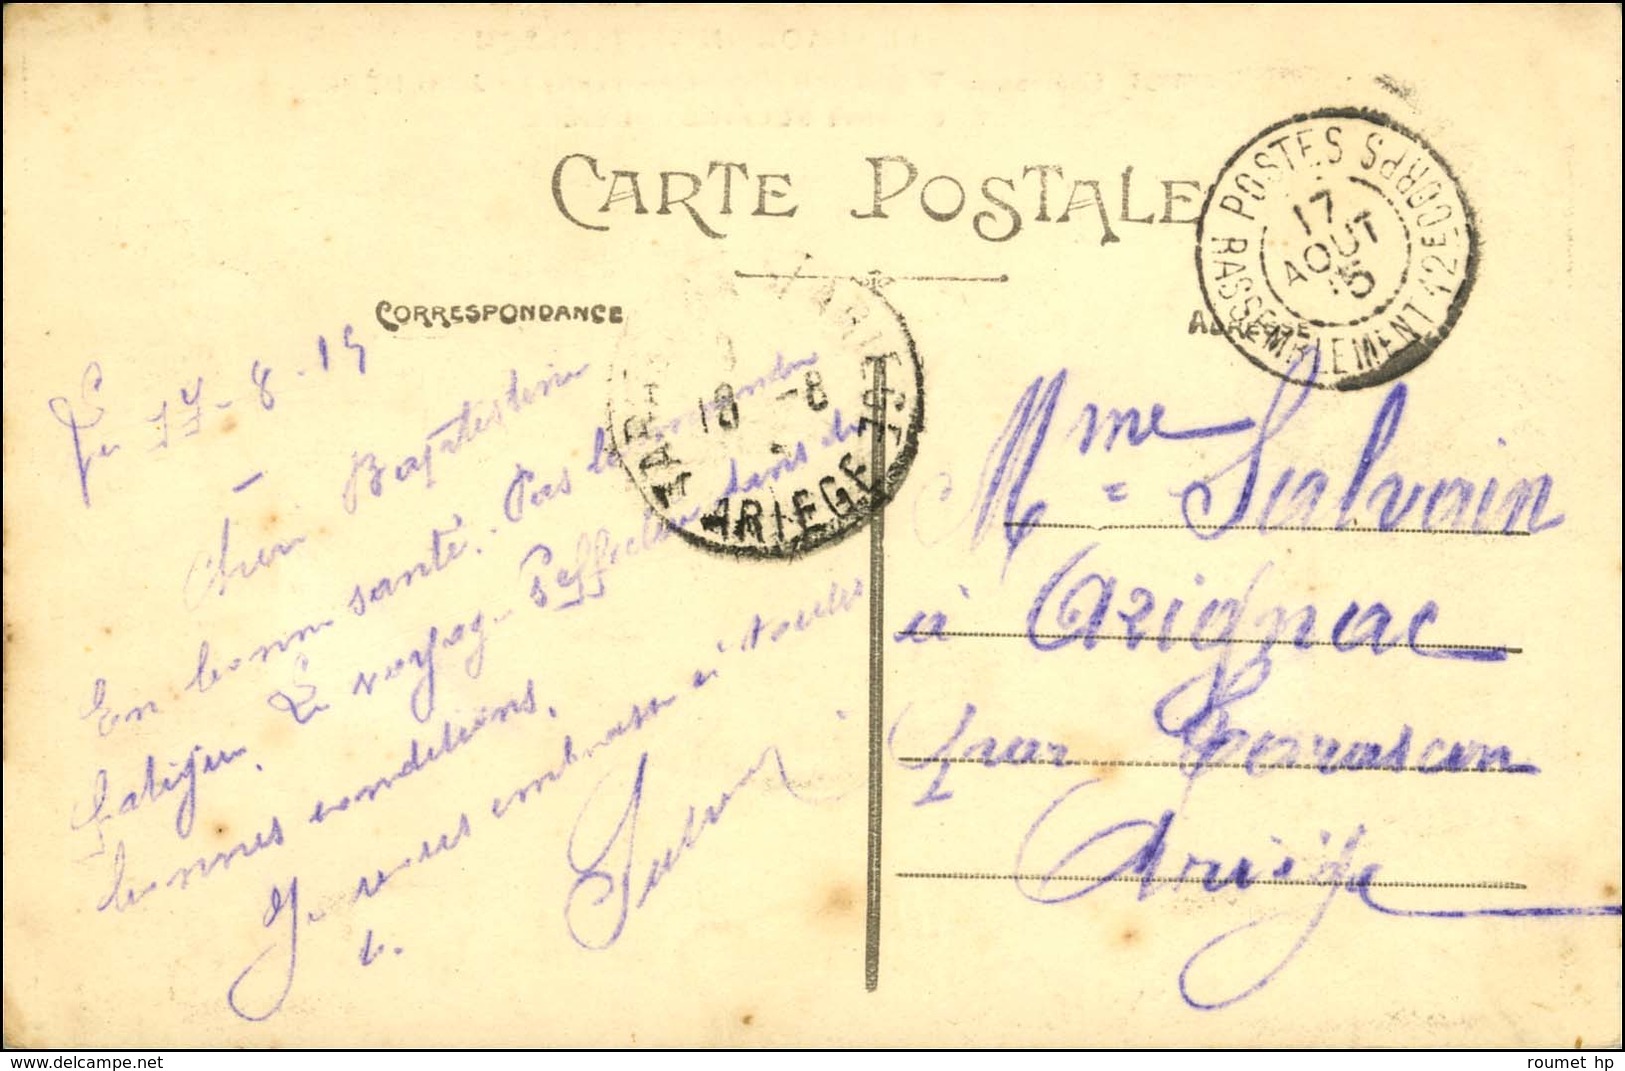 CARTE POSTALE
CORRESPONDANCE
ADRESSE
POSTES 12E CORPS
RASSEMBLEMENT
17
AOUT
15
18 -8
ARIEGE
Le 17-8-15
Baptistine
En bonne santé. Pas
fatigué. Le voyage s'effectue dans de
bonnes conditions.
Je vous embrasse à toutes
b.
Salvain
Mme Salvain
à Arignac
par Tarascon
Ariège
roumet hp